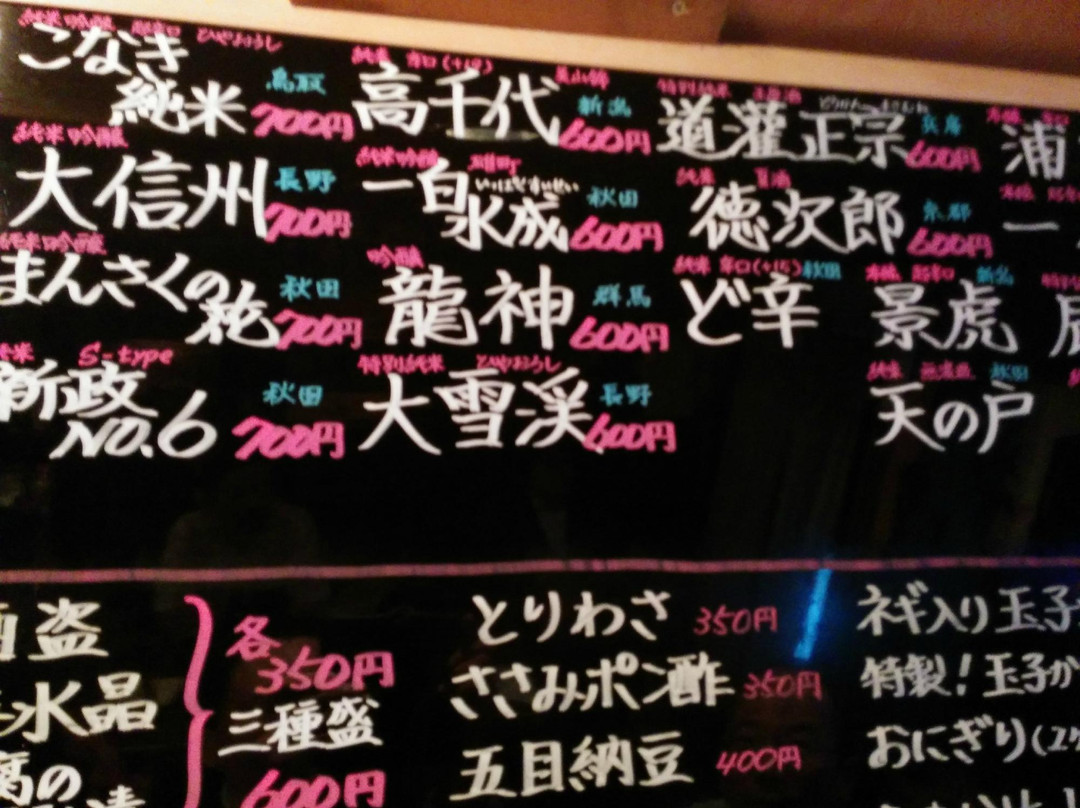 純米吟醸 超辛口 ひやおろし
こなき
純米 鳥取 700円
純米吟醸
大信州 長野 700円
純米吟醸
まんさくの
花 秋田 700円
純米 S-type
新政
NO.6 秋田 700円
純米 辛口(+18) 美山錦
高千代 新潟 600円
純米吟醸 雄町
一白
水成 秋田 600円
吟醸
龍神 群馬 600円
特別純米 ひやおろし
大雪渓 長野 600円
特別純米 生原酒
道灌 正宗 兵庫 600円
純米 夏酒
徳次郎 京都 600円
純米 辛口(+15) 秋田
ど辛
本醸 辛口
浦
本醸 超辛口
一
本醸 超辛口 新潟
景虎
純米 無濾過 秋田
天の戸
酒盗
水晶
腐の
各
350円
三種盛
600円
とりわさ 350円
ささみポン酢 350円
五目納豆 400円
ネギ入り玉子
特製!玉子か
おにぎり(2ケ